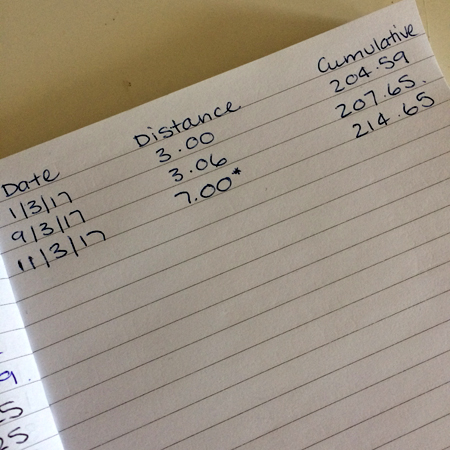 Date Distance Cumulative
1/3/17 3.00 204.59
9/3/17 3.06 207.65.
11/3/17 7.00* 214.65
9.
25